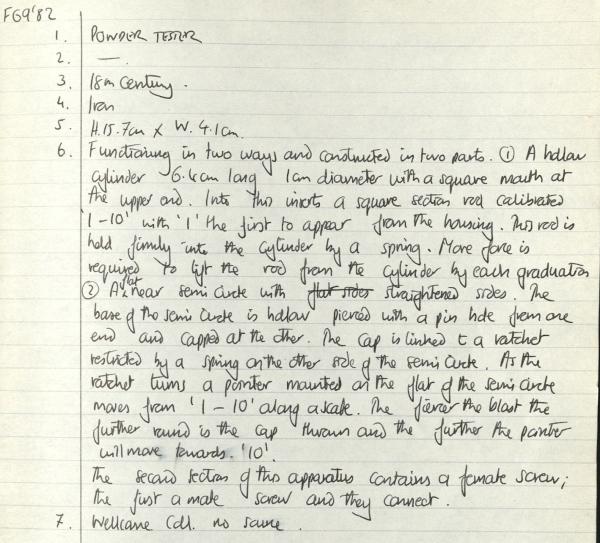 FG9'82
1. POWDER TESTER
2. —
3. 18th Century.
4. Iron
5. H.15.7cm x W. 4.1cm.
6. Functioning in two ways and constructed in two parts. ① A hollow
cylinder 6.4cm long 1cm diameter with a square mouth at
the upper end. Into this inserts a square section rod calibrated
'1-10' with '1' the first to appear from the housing. This rod is
held firmly into the cylinder by a spring. More force is
required to lift the rod from the cylinder by each graduation
② A flat near semi circle with flat sides straightened sides. The
base of the semi circle is hollow pierced with a pin hole from one
end and capped at the other. The cap is linked to a ratchet
restricted by a spring on the other side of the semi circle. As the
ratchet turns a pointer mounted on the flat of the semi circle
moves from '1-10' along a scale. The fiercer the blast the
further round is the cap thrown and the further the pointer
will move towards '10'.
The second section of this apparatus contains a female screw;
the first a male screw and they connect.
7. Wellcome Coll. no source.